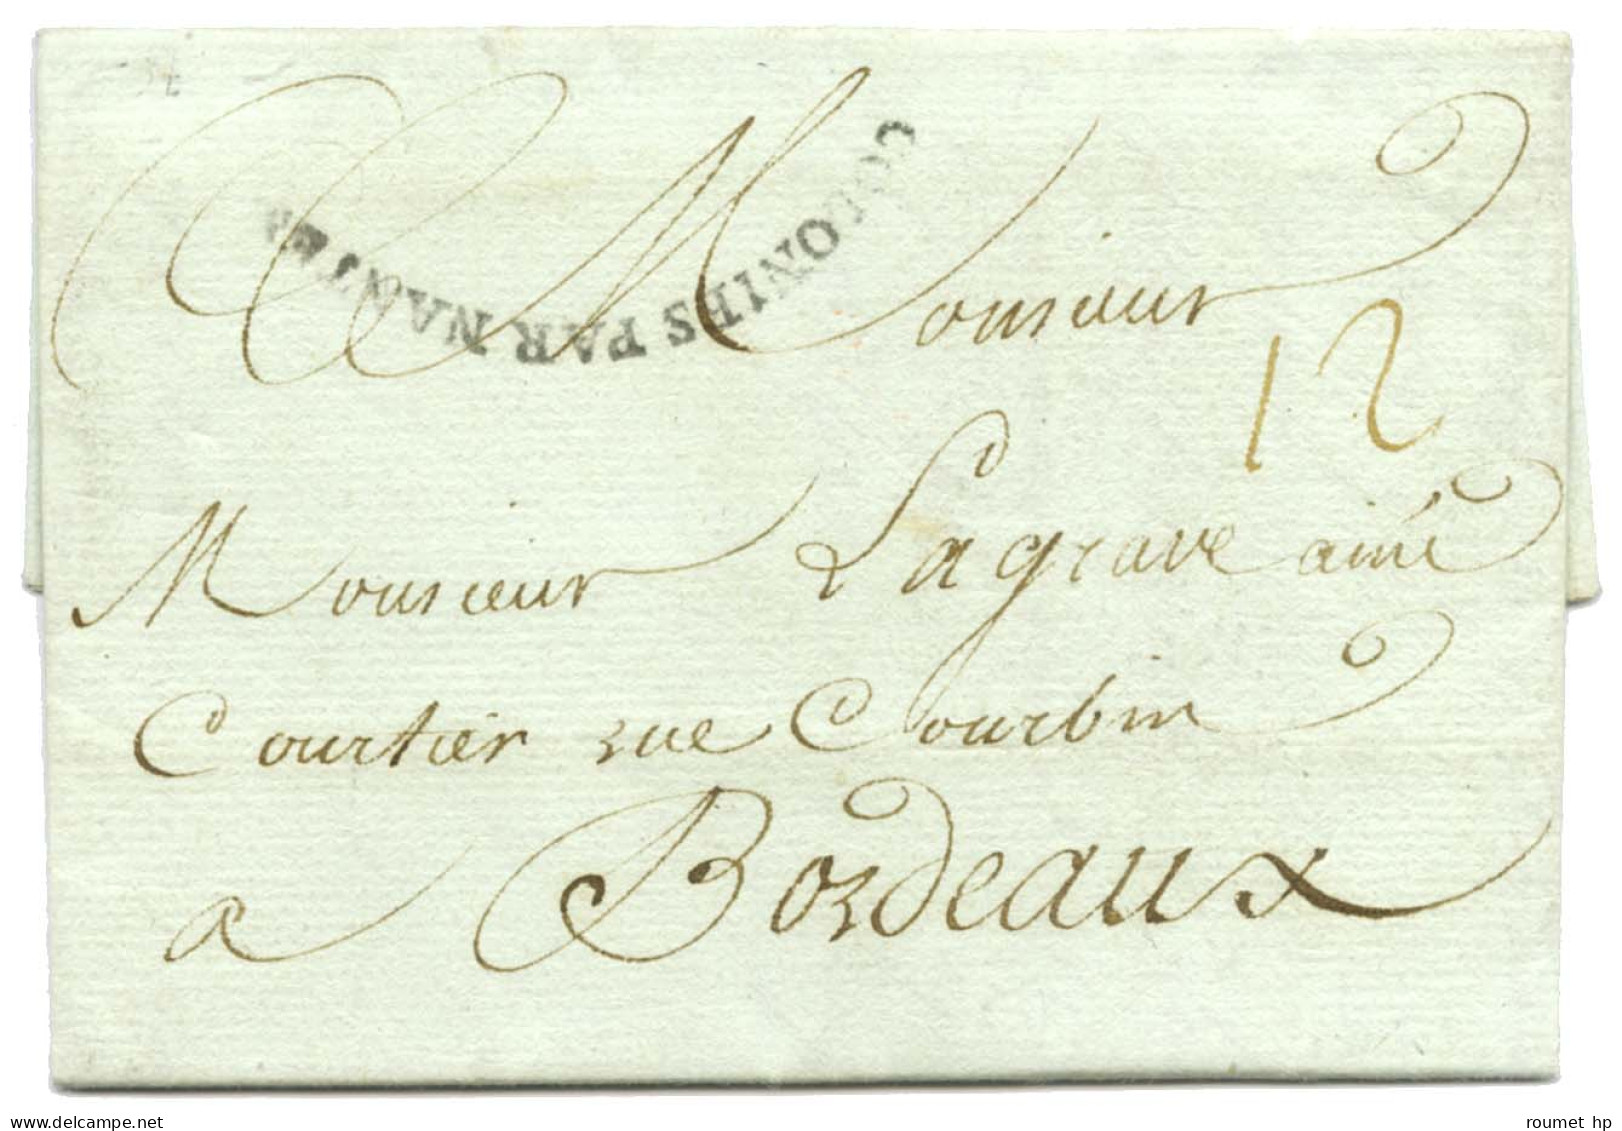 COLONIES PAR NANTES
Monsieur
12
Monsieur Lagrave ainé
Courtier rue Courbin
a Bordeaux
www.delcampe.net
roumet hp